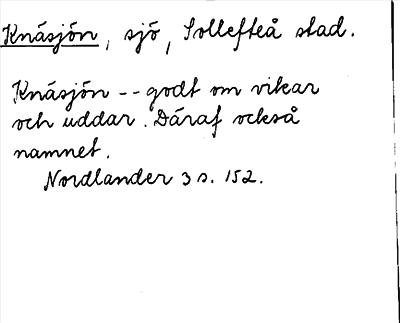 Knäsjön, sjö, Sollefteå stad.
Knäsjön -- godt om vikar
och uddar. Däraf också
namnet.
Nordlander 3 s. 152.